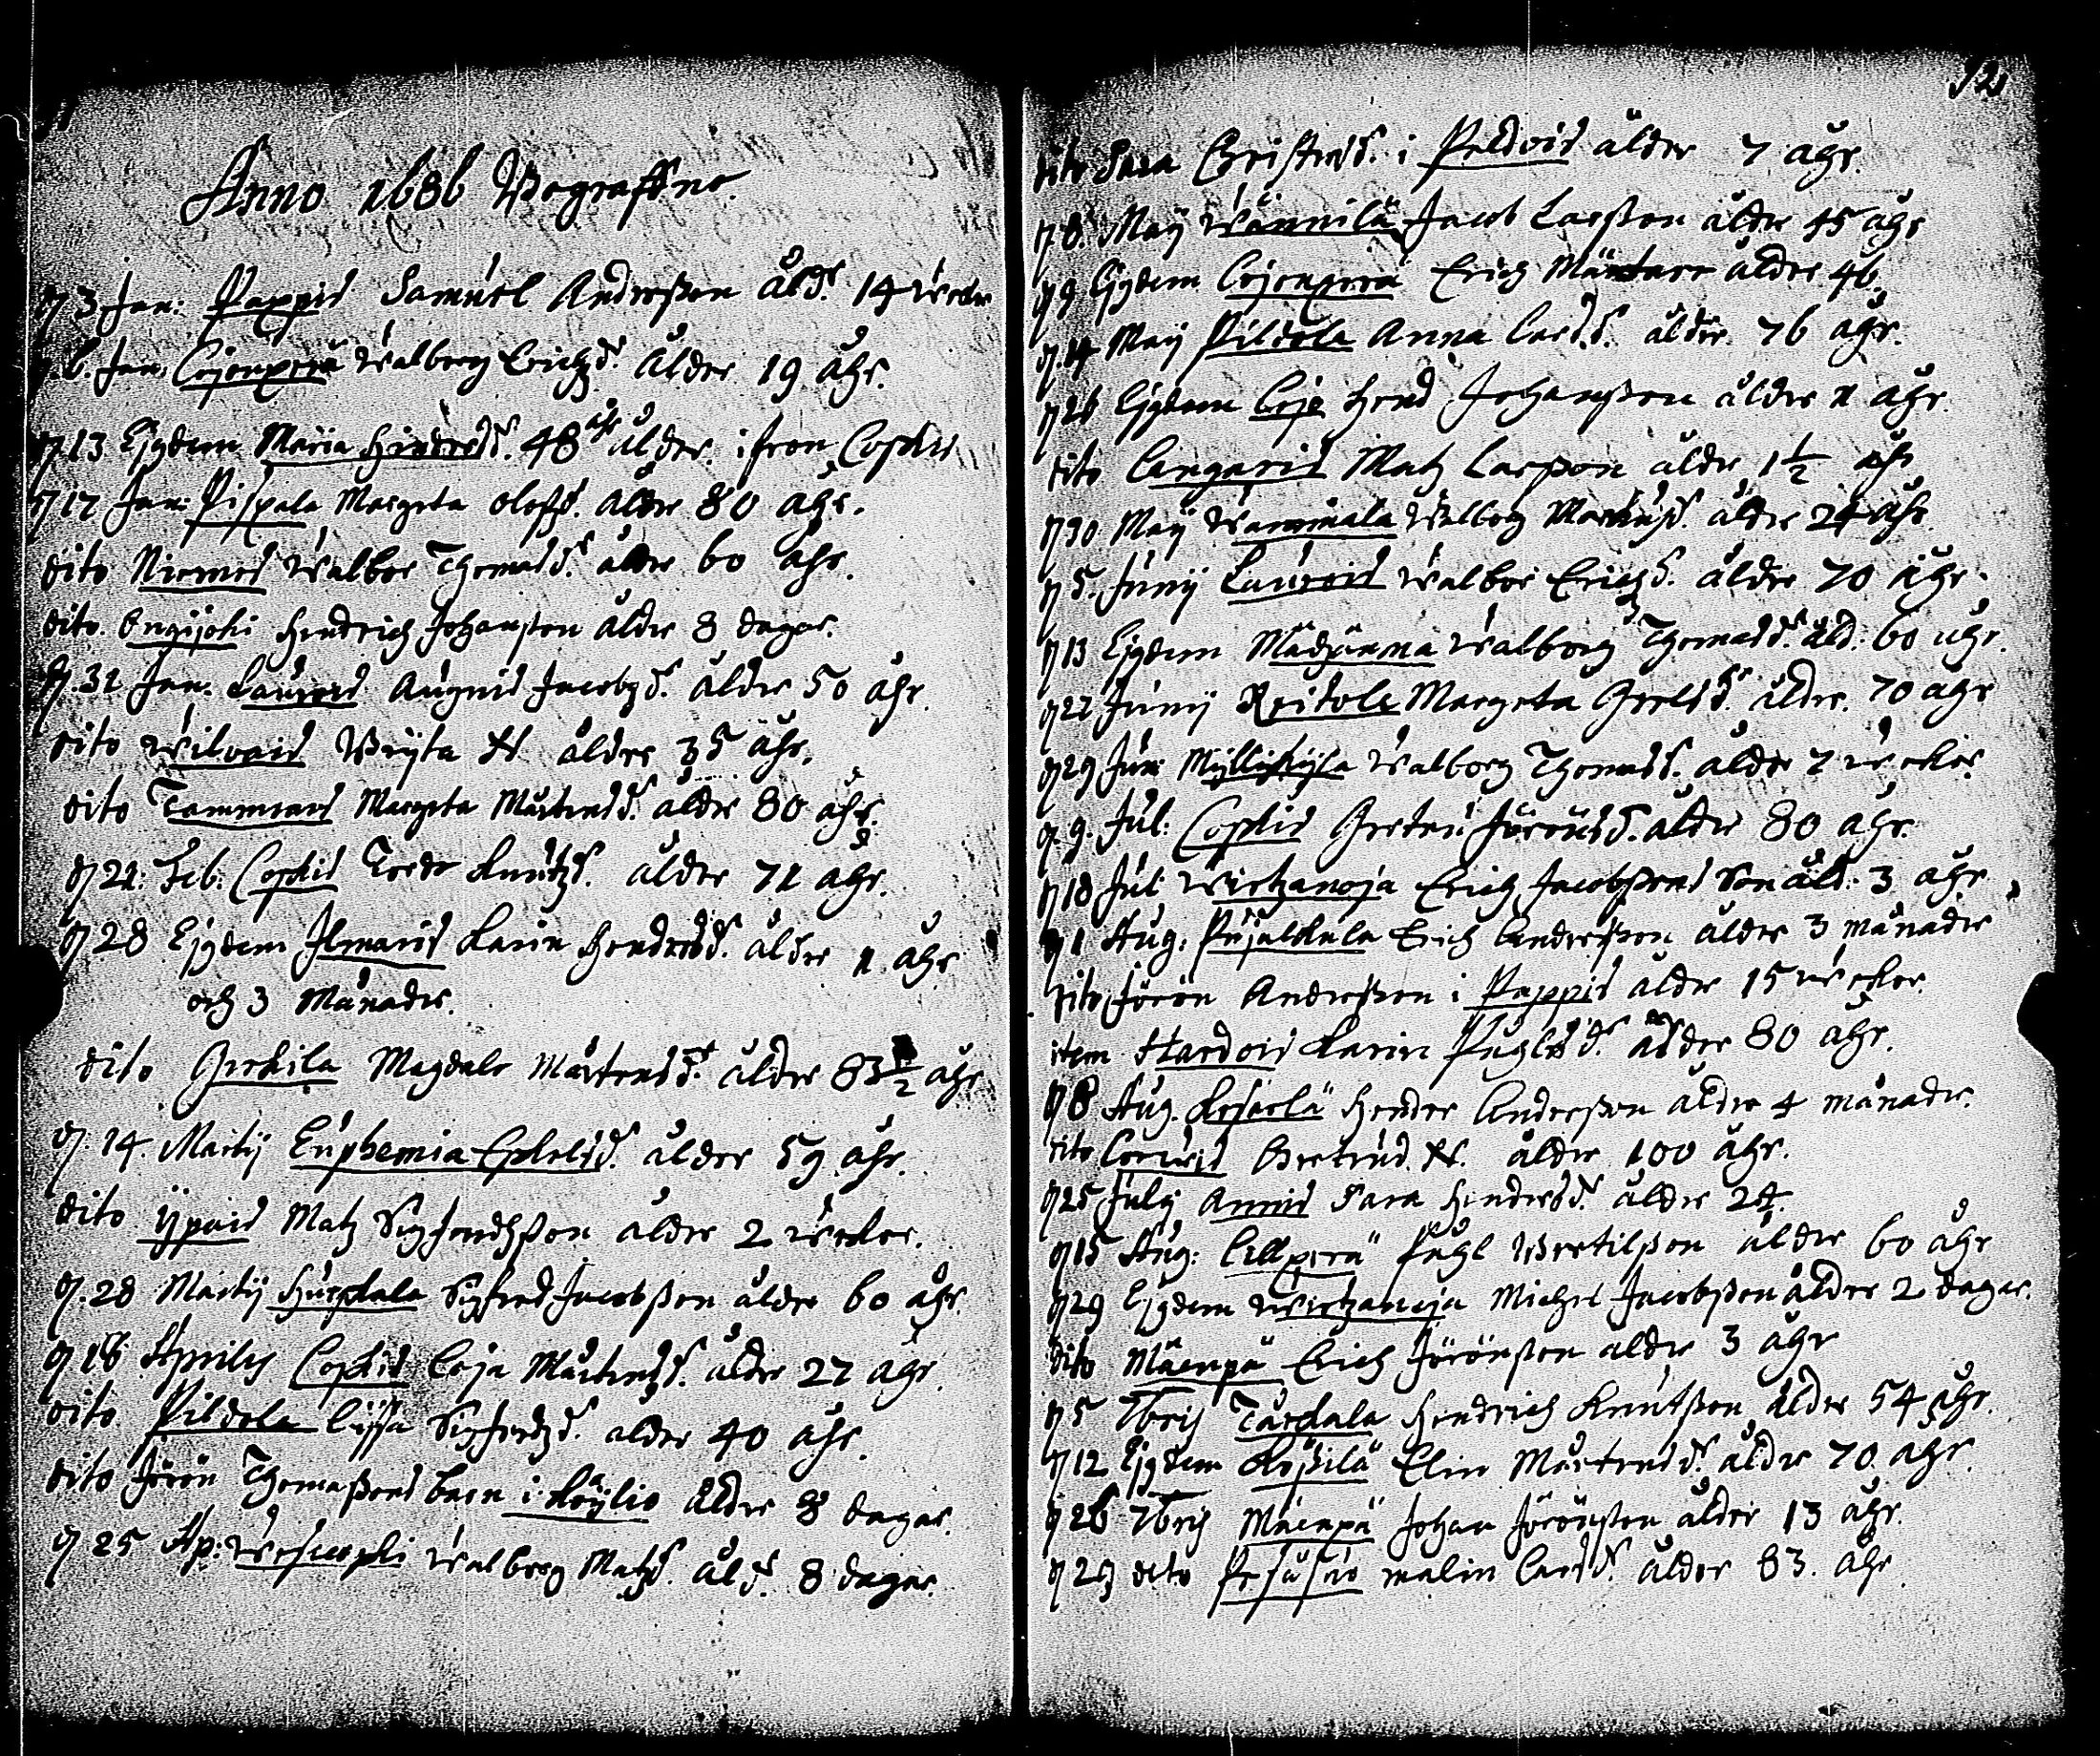 Anno 1686 Begrafne.
d 3 Jan: Pappis Samuel Andersson åld:r 14 weckr
d. 6. Jan: Cojonperä Walborg Erichzd:r ålder 19 åhr.
d 13 Ejusdem Maria Hindersd:r 48 åhr ålder. ifron Coskis
d 17 Jan: Pispala Margeta Olofzd:r ålder 80 åhr.
dito Niemes Walbor Thomasd:r ålder 60 åhr.
dito. Ongijoki Hendrich Johansson ålder 8 dagar.
d. 31 Jan. Laurois Augnis Jacobzd:r ålder 50 åhr.
dito Wilvais Bryta N. ålder 35 åhr.
dito Tammiais Margeta Mårtensd:r ålder 80 åhr.
d 21: Feb: Coskis Knutzd:r ålder 71 åhr.
d 28 Ejusdem Ilmaris Karin Hendersd:r ålder 1 åhr
och 3 Månader.
dito Gerkila Magdale Mårtensd:r ålder 83 1/2 åhr
d. 14. Martij Euphemia Eskelsd:r ålder 59 åhr.
dito Ypäis Matz Sigfredhsson ålder 2 weckor.
d. 28 Martij Huhkala Sigfred Jacobsson ålder 60 åhr.
d 18 Aprilis Coskis Caja Mårtensd:r ålder 27 åhr.
dito Pildola Lissa Sigfredzd:r ålder 40 åhr.
dito Jörän Thomassons barn i Köylio ålder 8 dagar.
d 25 Ap: Wwalborg Matzd:r åld:r 8 dagar.
12
dito Sara Christersd:r i Peldois ålder 7 åhr.
d 8. Maij Wännilä Jacob Larsson ålder 45 åhr
d 9 Ejusdem Cojonperä Erich Mårtens ålder 46.
d. 14 Maij Pildola Anna Larsd:r ålder 76 åhr.
d 26 Ejusdem Cojo Hend Johansson ålder 1 åhr.
dito Cangaris Matz Larsson ålder 1 1/2 åhr
d 30 Maij Wammala Walborg Markusd:r ålder 24 åhr
d 5. Junij Laurois Walbor Erichzd:r ålder 70 åhr.
d 13 Ejusdem Mädjänmä Walborg Thomasd:r åld: 60 åhr.
d 22 Junij Reitola Margeta Grelsd:r ålder. 70 åhr
d 29 Jun: Myllikylä Walborg Thomasd:r ålder 7 weckor.
d 9. Jul: Coskis Gretau Jöransd:r ålder 80 åhr.
d 18 Jul: Wirtzanoja Erich Jacobssons Son åld: 3 åhr
d 1 Aug: Pujalkala Erich Andersson ålder 3 månader
dito Jörän Andersson i Pappis ålder 15 weckor.
item Hardois Karin Puglsd:r ålder 80 åhr.
d 8 Aug. Kesäelä Hender Andersson ålder 4 månader.
dito Bertrud N. ålder 100 åhr.
d 25 July Annis Sara Hendersd:r ålder 24.
d 15 Aug: Cillperä Pugl Bertilsson ålder 60 åhr
d 29 Ejusdem Wirtzanoja Michel Jacobsson ålder 2 dagar.
dito Mäenpä Erich Jöransson ålder 3 åhr
d 5 7bris Tarkala Hendrich Knutsson ålder 54 åhr.
d 12 Ejusdem Kepilä Elin Mårtensd:r ålder 70 åhr.
d 26 7bris Mäenpä Johan Jöransson ålder 13 åhr.
d 29 dito Pesusuo malin Larsd:r ålder 83. åhr.